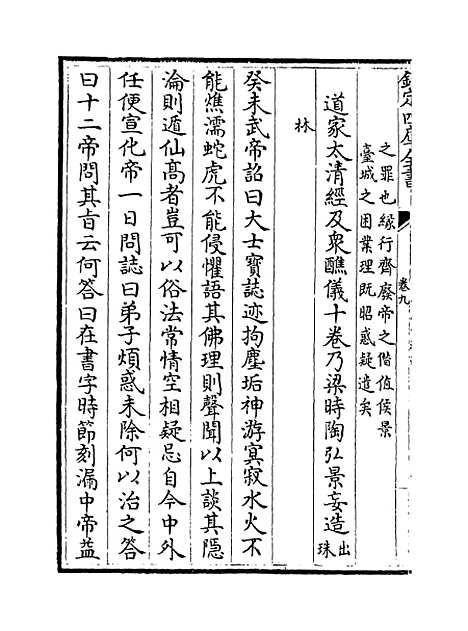 欽定四庫全書
卷九
之罪也緣行齊廢帝之偕值侯景
臺城之困業理既昭惑疑遣矣
道家太清經及衆醮儀十卷乃梁時陶弘景妄造出珠
林
癸未武帝詔曰大士寳誌迹拘塵垢神游㝠寂水火不
能燋濡蛇虎不能侵懼語其佛理則聲聞以上談其隠
淪則遁仙髙者豈可以俗法常情空相疑忌自今中外
任便宣化帝一日問誌曰弟子煩惑未除何以治之答
曰十二帝問其㫖云何答曰在書字時節刻漏中帝益